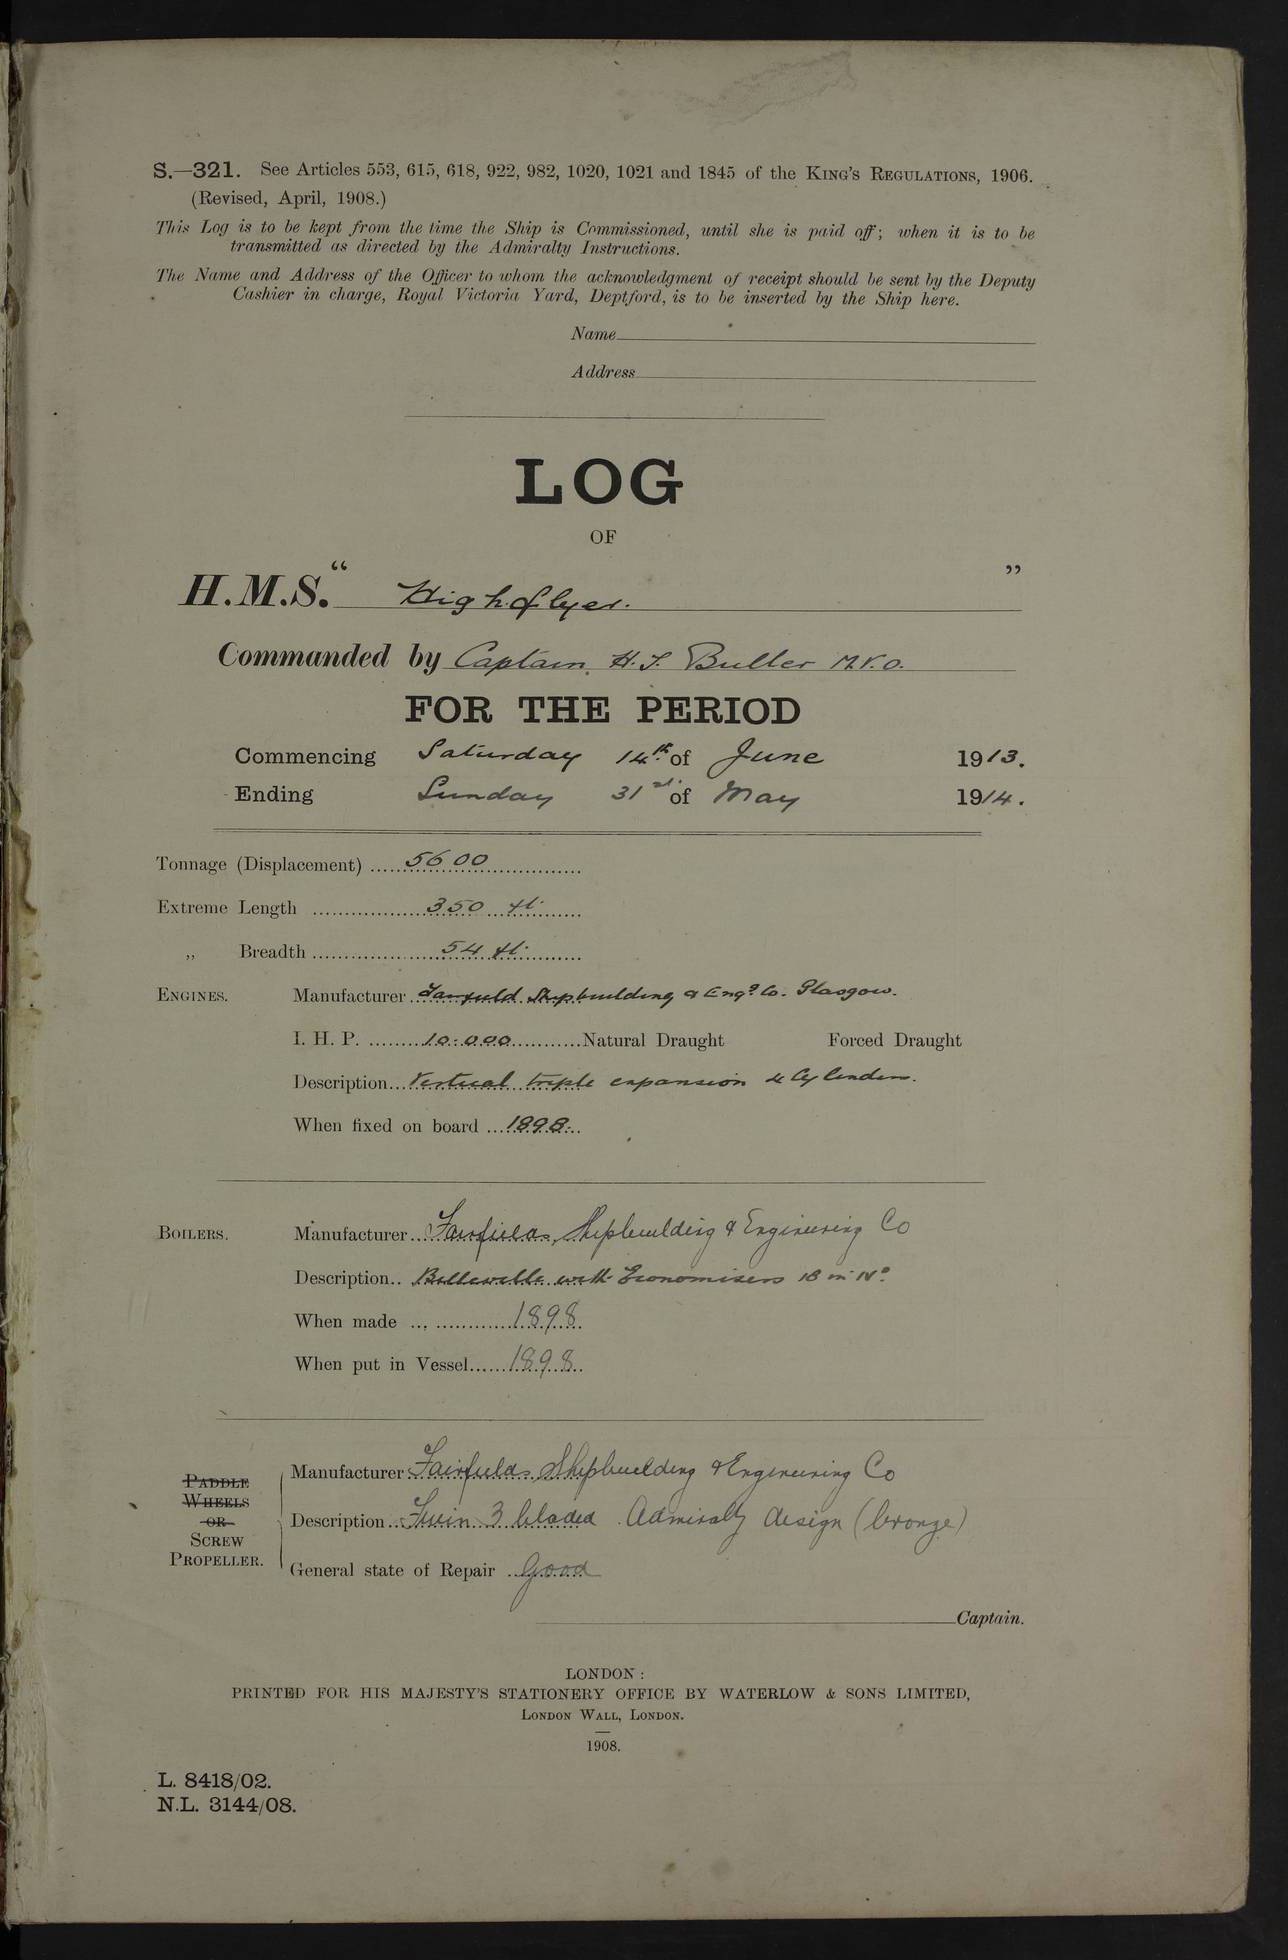 S.—321. See Articles 553, 615, 618, 922, 982, 1020, 1021 and 1845 of the KING'S REGULATIONS, 1906.
(Revised, April, 1908.)
This Log is to be kept from the time the Ship is Commissioned, until she is paid off; when it is to be
transmitted as directed by the Admiralty Instructions.
The Name and Address of the Officer to whom the acknowledgment of receipt should be sent by the Deputy
Cashier in charge, Royal Victoria Yard, Deptford, is to be inserted by the Ship here.
Name
Address
LOG
OF
H.M.S. " Highflyer. "
Commanded by Captain H. T. Buller M.V.O.
FOR THE PERIOD
Commencing Saturday 14th of June 1913.
Ending Sunday 31st of May 1914.
Tonnage (Displacement) 5600
Extreme Length 350 ft.
„ Breadth 54 ft.
ENGINES. Manufacturer Fairfield Shipbuilding & Engg. Co. Glasgow.
I. H. P. 10.000 Natural Draught Forced Draught
Description Vertical triple expansion 4 Cylinders.
When fixed on board 1898.
BOILERS. Manufacturer Fairfields Shipbuilding & Engineering Co
Description Belleville with Economisers 18 in No.
When made 1898
When put in Vessel 1898
PADDLE
WHEELS
OR
SCREW
PROPELLER.
Manufacturer Fairfields Shipbuilding & Engineering Co
Description Twin 3 bladed Admiralty design (bronze)
General state of Repair Good
Captain.
LONDON:
PRINTED FOR HIS MAJESTY'S STATIONERY OFFICE BY WATERLOW & SONS LIMITED,
LONDON WALL, LONDON.
1908.
L. 8418/02.
N.L. 3144/08.